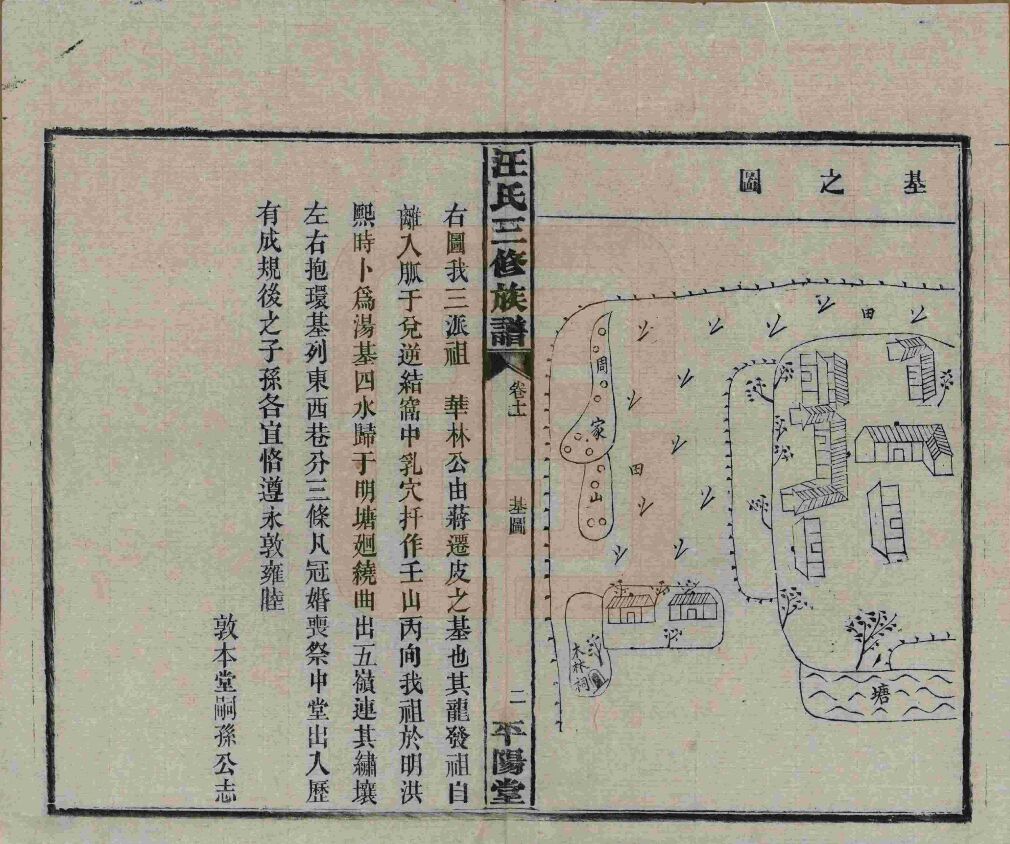 基之圖
田
周家山
田
木林祠
塘
汪氏三修族譜
卷十一
基圖
二
平陽堂
右圖我三派祖　華林公由蔣遷皮之基也其龍發祖自
離入脈于兌逆結窩中乳穴扦作壬山丙向我祖於明洪
熙時卜為湯基四水歸于明塘廻繞曲出五嶺連其繡壤
左右抱環基列東西巷分三條凡冠婚喪祭中堂出入歷
有成規後之子孫各宜恪遵永敦雍睦
敦本堂嗣孫公志